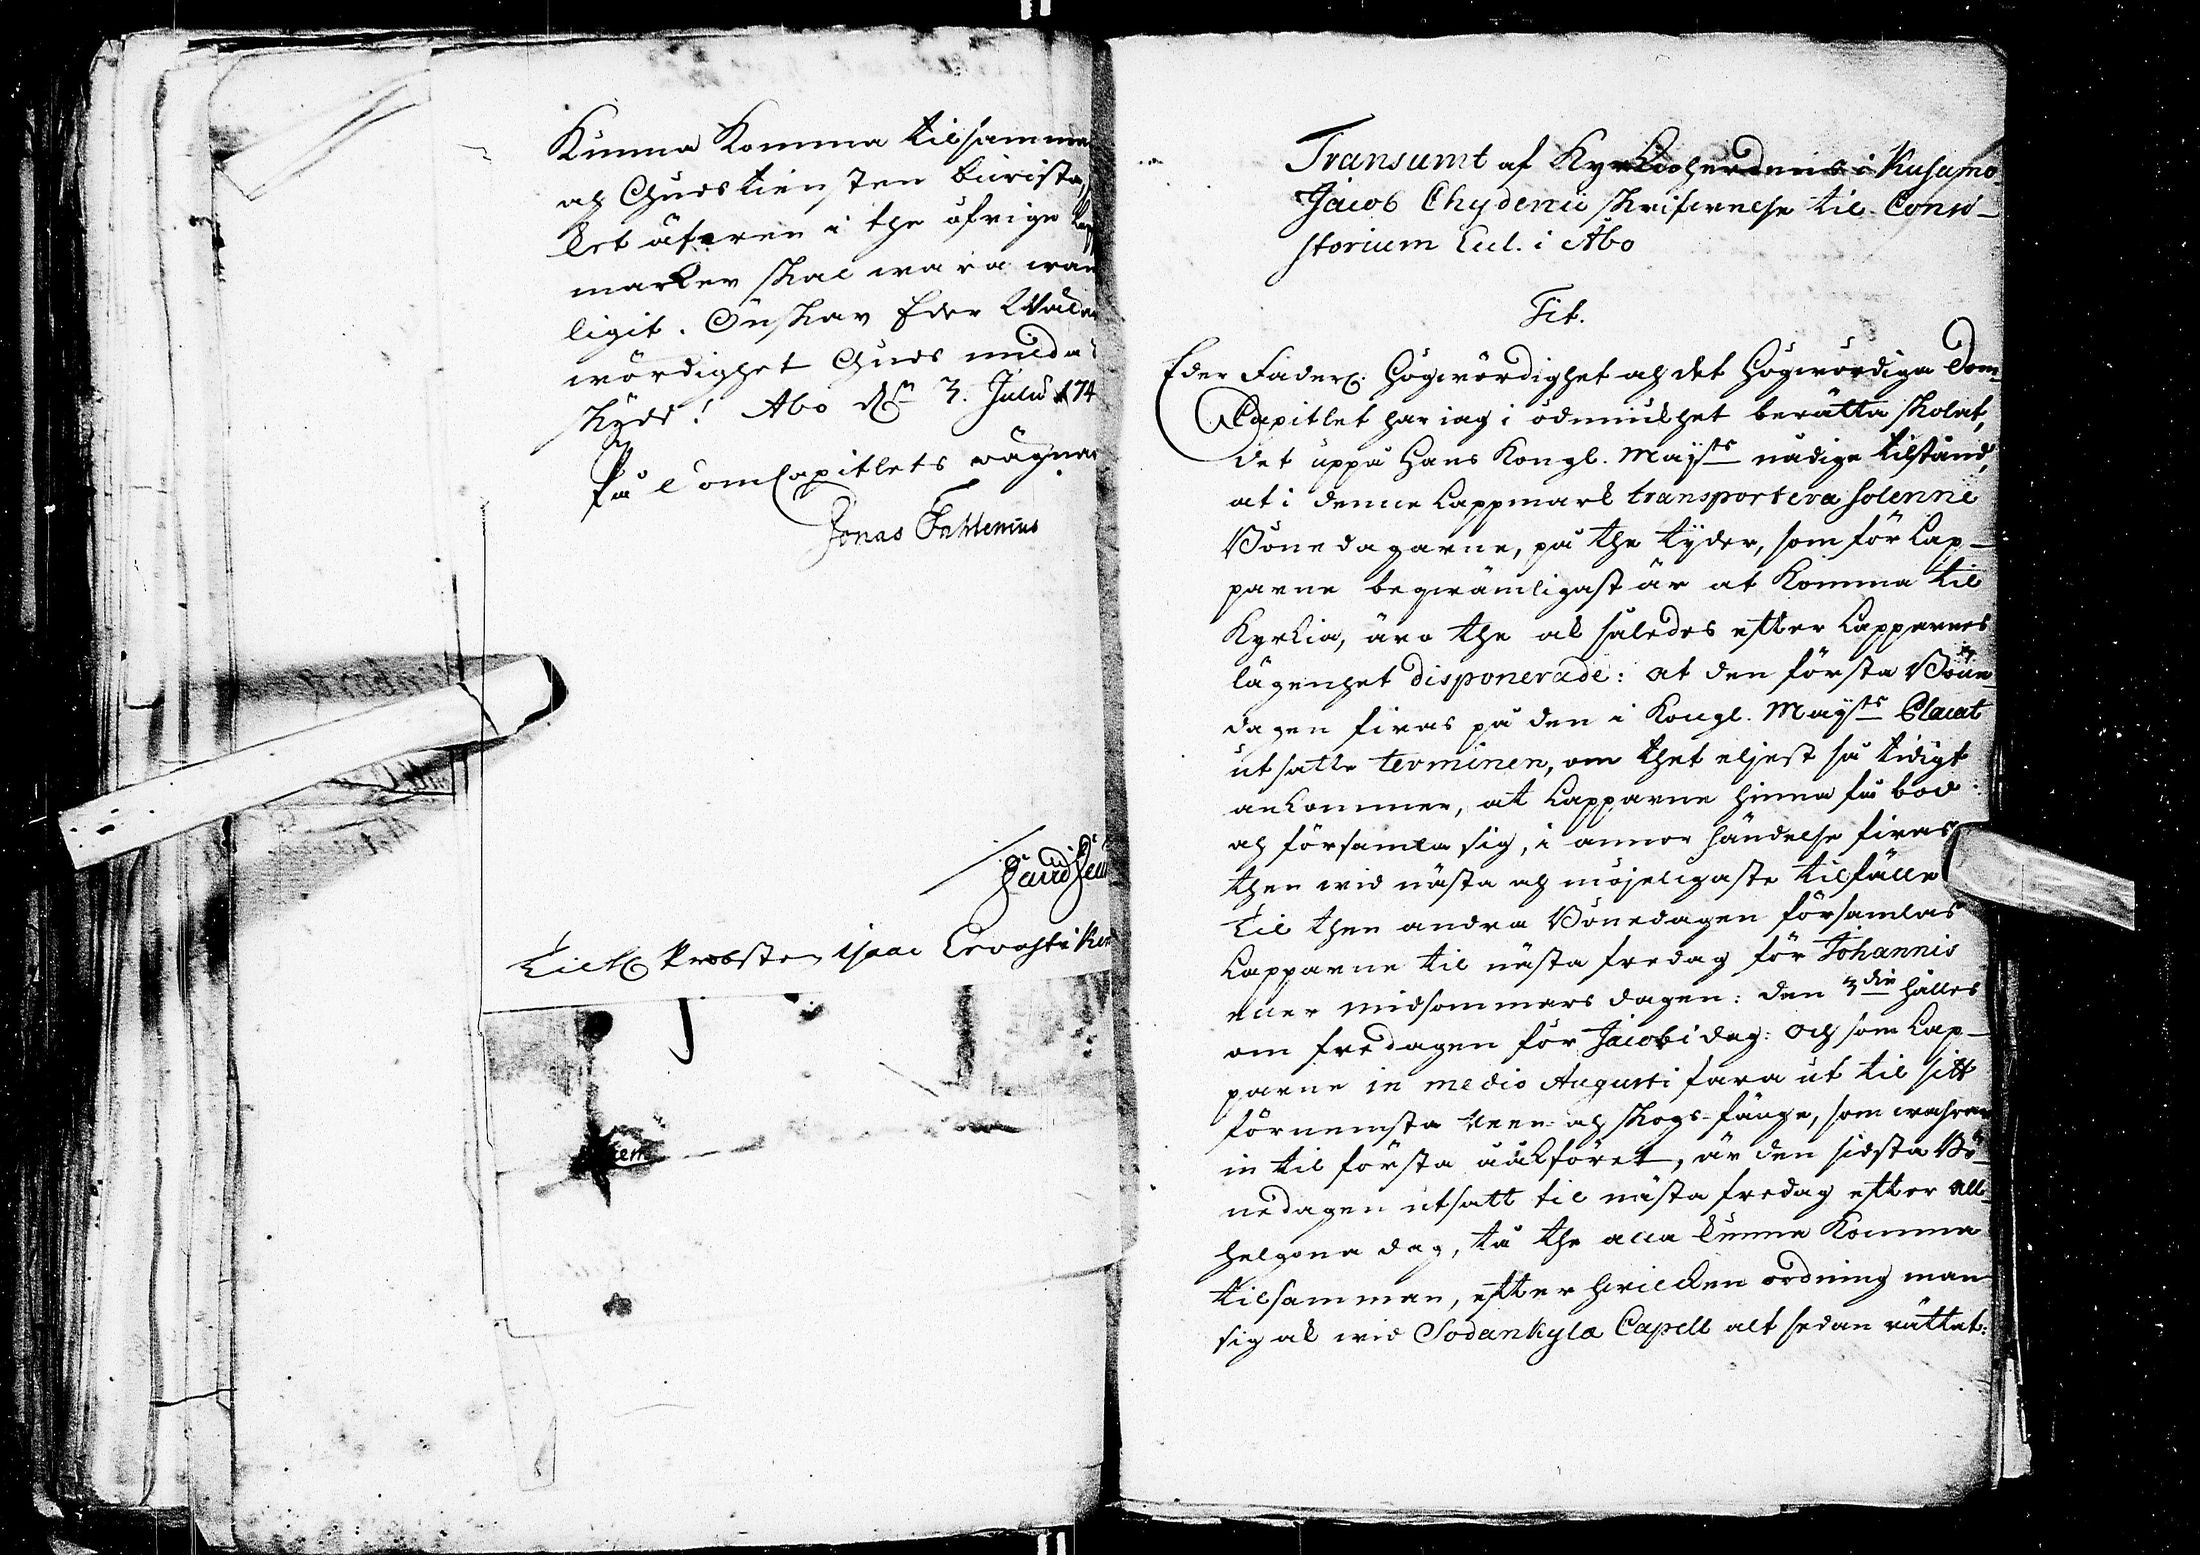 Kunna komma tilsamma
och Gudstiensten biwista,
det äfwen i the öfrige Lapp
marker skal wara wan
ligit. Önskar Eder Wäl
wördighet Guds milda
skydd! Åbo den 3. Julii 174
På DomCapitlets wägnar
Jonas Fahlenius
Til H Probsten Isaac Ervasti
Transumt af Kyrkioherdens i Kusamo
Jacob Chydenii skrifwelse til Consi-
storium Eccl. i Åbo
Tit.
Eder Faderl. Högwördighet och det Högwördiga Dom-
Capitlet har iag i ödmiukhet berätta skolat,
det uppå Hans Kongl. Maysts nådige tilstånd,
at i denne Lappmark transportera solenne
Bönedagarne, på the tyder, som för Lap-
parne beqwämligast är at komma til
Kyrkia, äro the ok således efter Lapparnes
lägenhet disponerade: at den första Böne-
dagen firas på den i Kongl. Maysts Placat
utsatte terminen, om thet eljest så tidigt
ankommer, at Lapparne hinna få bod
och församla sig, i annor händelse firas
then wid nästa och möjeligaste tilfälle
Til then andra Bönedagen församlas
Lapparne til nästa fredag för Johannis
eller Midsommars dagen: den 3die hålles
om fredagen för Jacobi dag: och som Lap-
parne in medio Augusti fara ut til sitt
förnemsta och skogs-fänge, som wahrar
in til första åkföret, är den sidsta Bö-
nedagen utsatt til nästa fredag efter All-
helgona dag, tå the alla kunna komma
tilsamman, efter hwilcken ordning man
sig ok wid Sodankylä Capell alt sedan rättat: